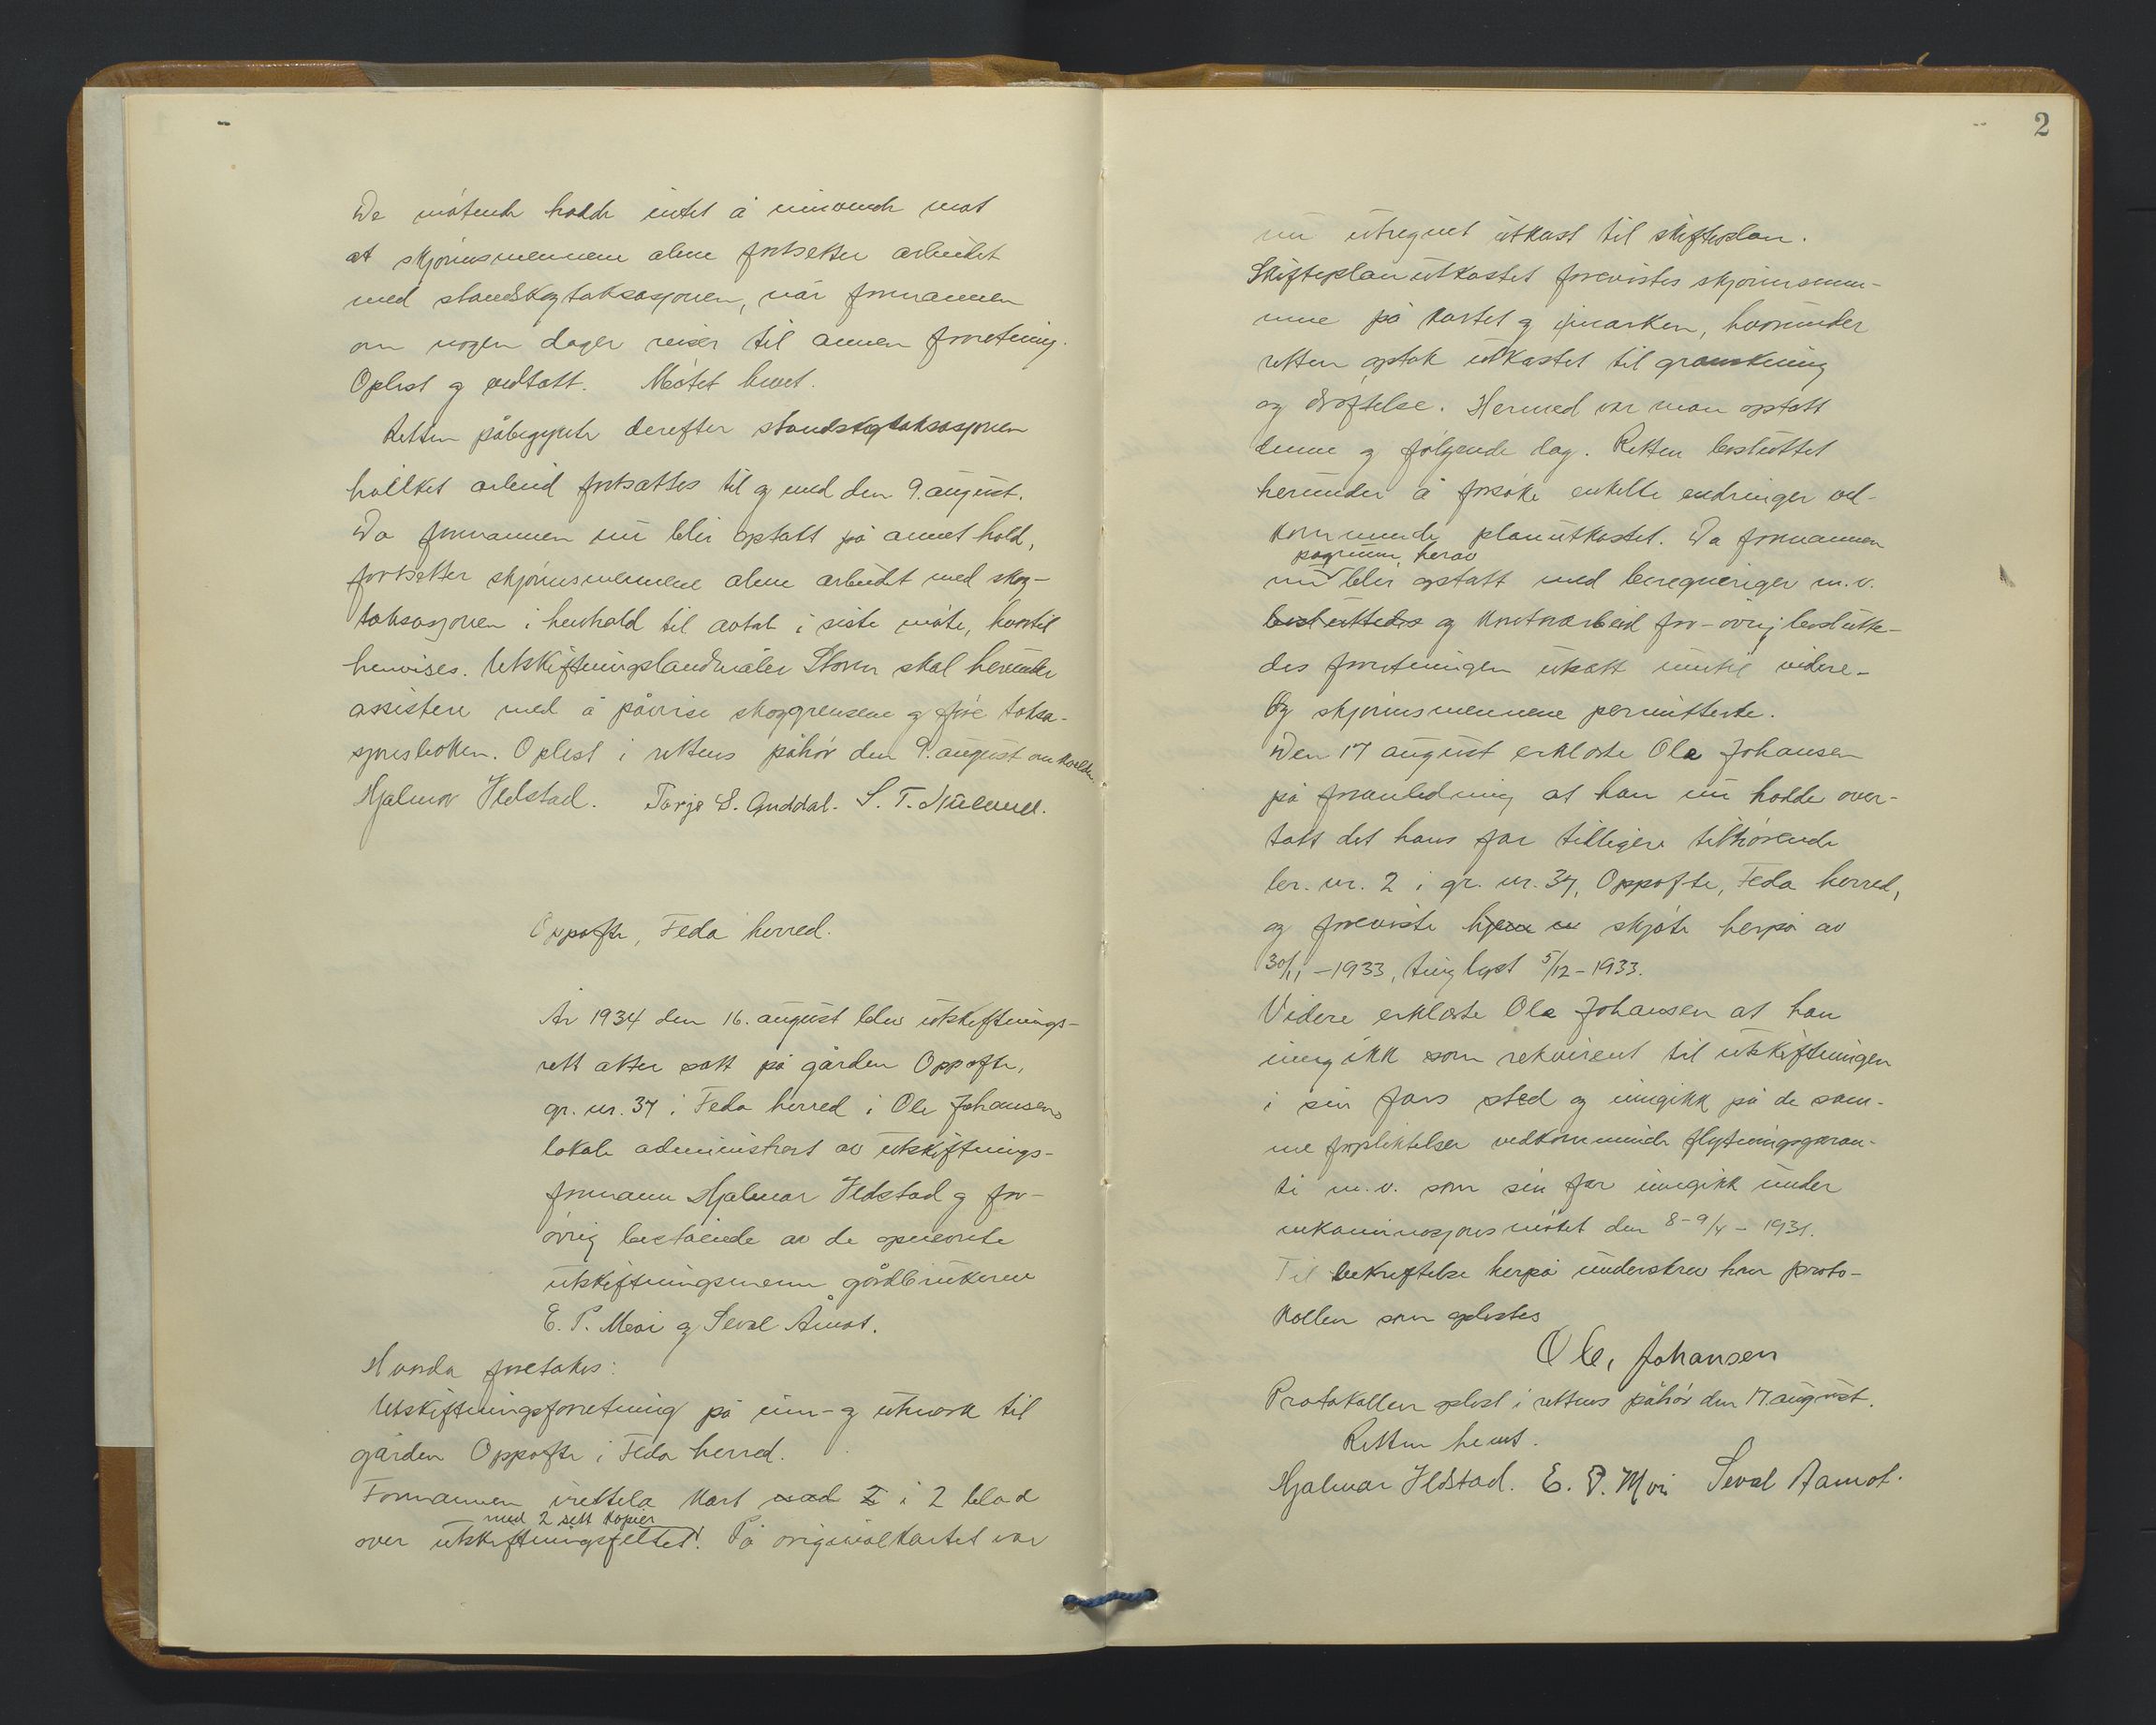 De møtende hadde intet å innvende mot
at skjønnsmennene alene fortsetter arbeidet
med standskogtaksasjonen, når formannen
om nogen dager reiser til annen forretning.
Oplest og vedtatt. Møtet hevet.
Retten påbegynte derefter standskogtaksasjonen
hvilket arbeid fortsattes til og med den 9. august.
Da formannen nu blir optatt på annet hold,
fortsetter skjønnsmennene alene arbeidet med skog-
taksasjonen i henhold til avtale i siste møte, hvortil
henvises. Utskiftningslandmåler Storm skal herunder
assistere med å påvise skoggrensene og føre taksa-
sjonsboken. Oplest i rettens påhør den 9. august om kvelden.
Hjalmar Ildstad. Tarje S. Guddal. S. T.
Oppofte, Feda herred.
År 1934 den 16. august blev utskiftnings-
rett atter satt på gården Oppofte,
gr. nr. 37 i Feda herred i Ole Johansens
lokale administrert av utskiftnings-
formann Hjalmar Ildstad og for-
øvrig bestående av de opnevnte
utskiftningsmenn gårdbrukerne
E. P. Moi og Seval Åmot.
Hvorda foretakes:
Utskiftningsforretning på inn- og utmark til
gården Oppofte i Feda herred.
Formannen irettela kart med 2 i 2 blad
med 2 sett kopier
over utskiftningsfeltet. På originalkartet var
2
nu utregnet utkast til skifteplan.
Skifteplanutkastet forevistes skjønnsmen-
nene på kartet og i marken, hvorunder
retten optok utkastet til granskning
og drøftelse. Hermed var man optatt
denne og følgende dag. Retten besluttet
herunder å forsøke enkelte endringer ved-
kommende planutkastet. Da formannen
pågrunn herav
nu blir optatt med beregneriger m.v.
besluttedes og kontorarbeid for-øvrig beslutte-
des forretningen utsatt inntil videre-
Og skjønnsmennene permitterte.
Den 17 august erklærte Ole Johansen
på foranledning at han nu hadde over-
tatt det hans far tidligere tilhørende
br. nr. 2 i gr. nr. 37, Oppofte, Feda herred,
og foreviste hjem skjøte herpå av
30/11 - 1933, tinglyst 5/12 - 1933.
Videre erklærte Ole Johansen at han
inngikk som rekvirent til utskiftningen
i sin fars sted og inngikk på de sam-
me forpliktelser vedkommende flytningsgaran-
ti m.v. som sin far inngikk under
rekaminasjonsmøtet den 8-9/4 - 1931.
Til bekreftelse herpå underskrev han proto-
kollen som oplestes
Ole, Johansen
Protokollen oplest i rettens påhør den 17. august.
Retten hevet.
Hjalmar Ildstad. E. P. Moi Seval Aamot.